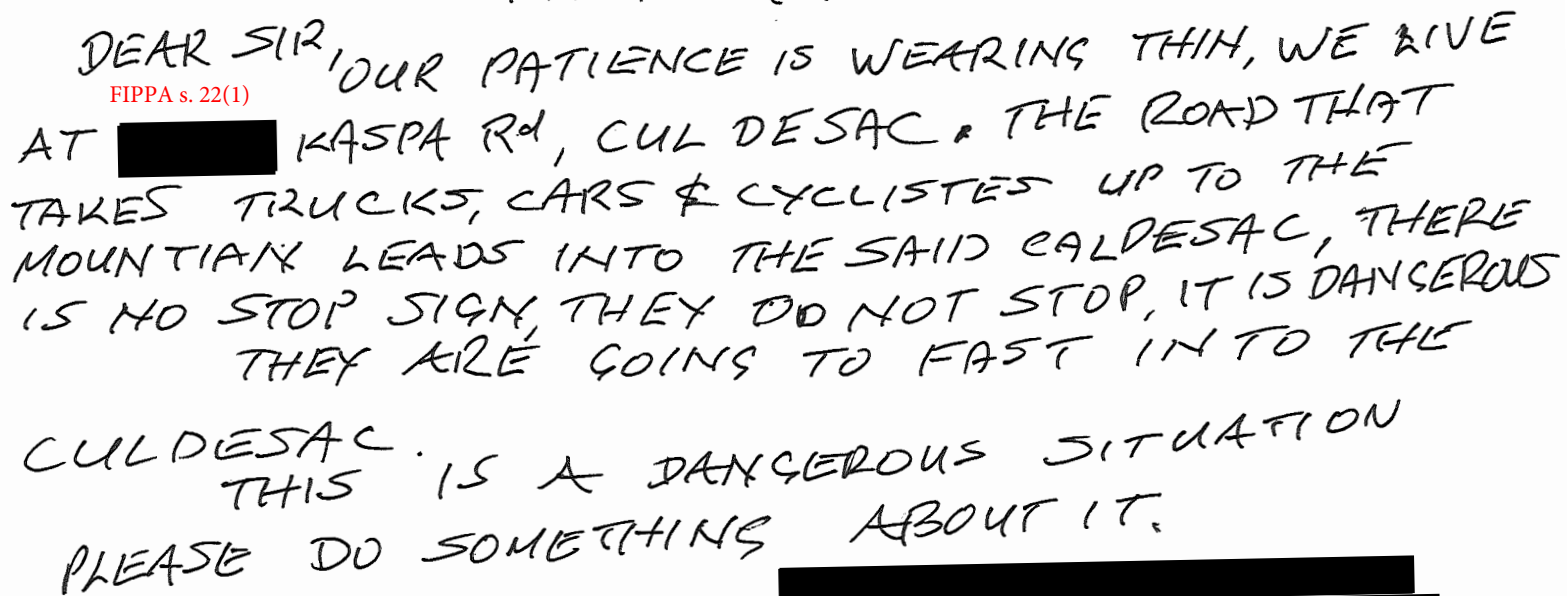 DEAR SIR, OUR PATIENCE IS WEARING THIN, WE LIVE
FIPPA s. 22(1)
AT KASPA Rd, CUL DE SAC. THE ROAD THAT
TAKES TRUCKS, CARS & CYCLISTES UP TO THE
MOUNTIAN LEADS INTO THE SAID CALDESAC, THERE
IS NO STOP SIGN, THEY DO NOT STOP, IT IS DANGEROUS
THEY ARE GOING TO FAST INTO THE
CULDESAC.
THIS IS A DANGEROUS SITUATION
PLEASE DO SOMETHING ABOUT IT.